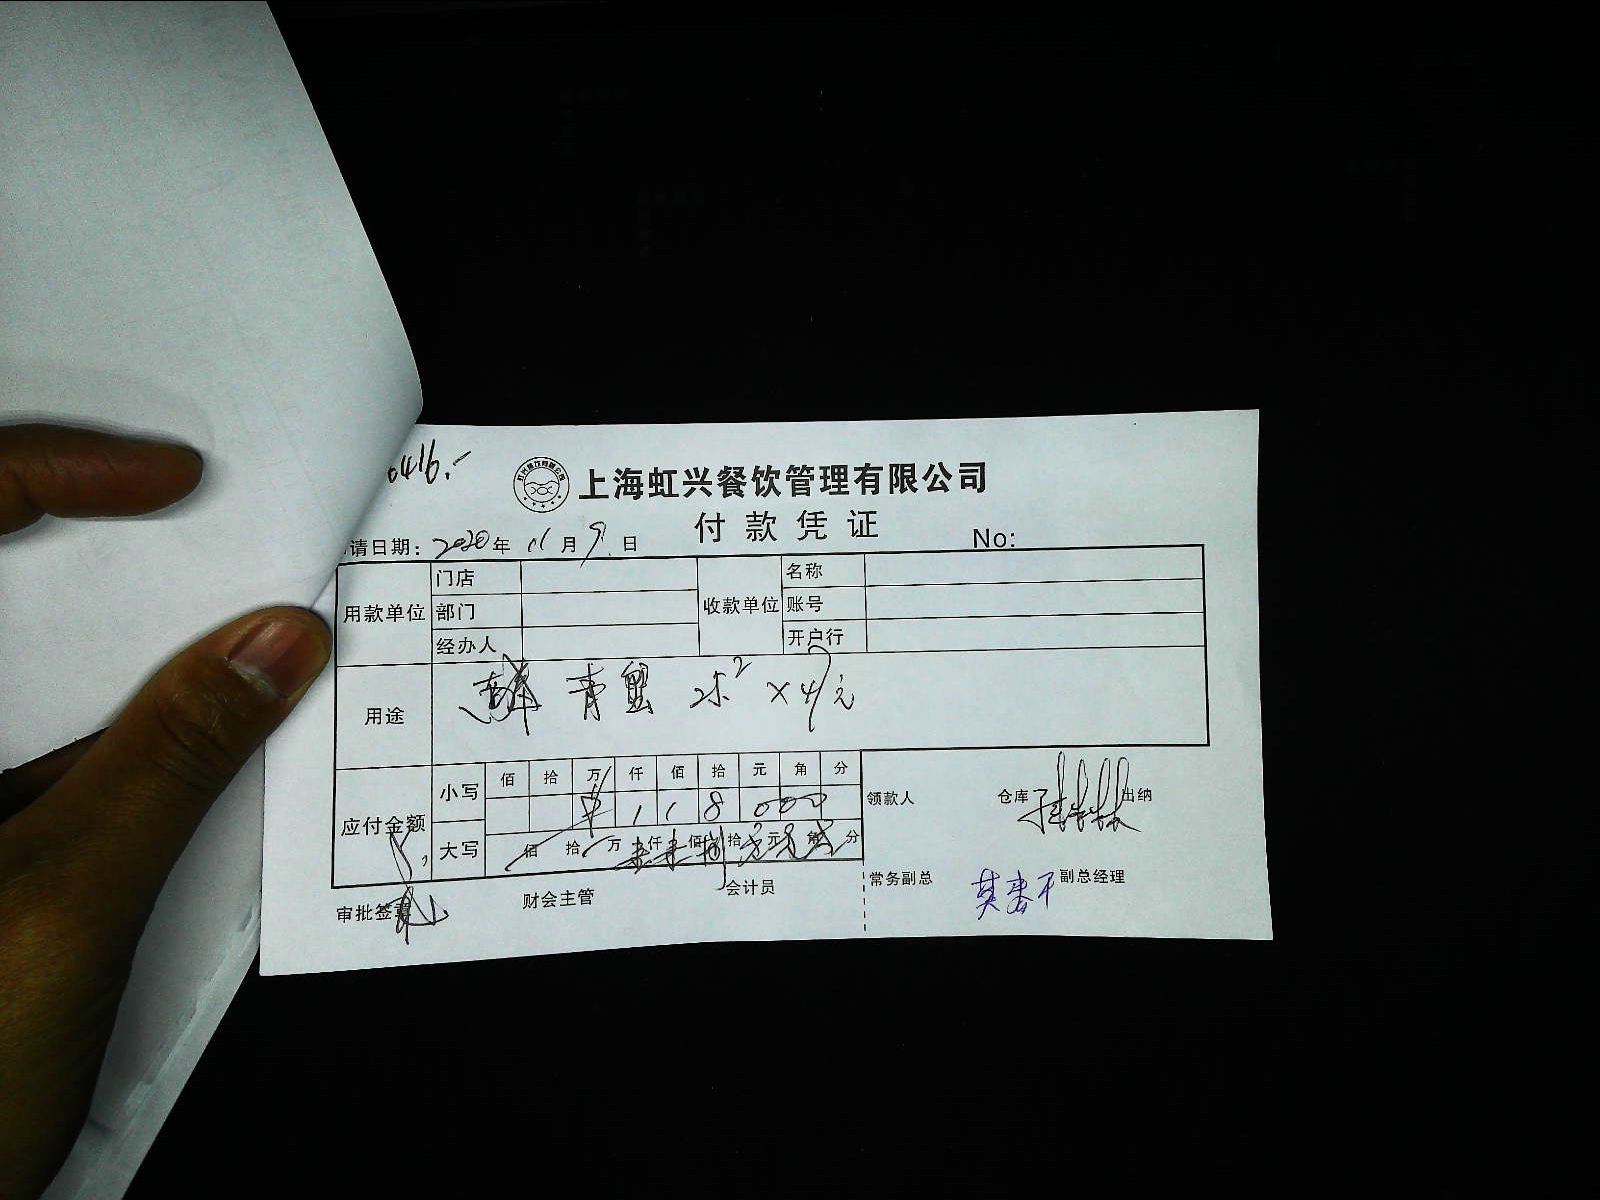 0416.-
上海虹兴餐饮管理有限公司
付款凭证
请日期: 2020年11月9日 No:
用款单位 门店 收款单位 名称
部门 账号
经办人 开户行
用途 青蟹 25.2×47元
应付金额 小写 佰 拾 万 仟 佰 拾 元 角 分
¥ 1 1 8 0 0 0
大写 佰 拾 万 仟 佰 拾 元 角 分
领款人 仓库 出纳
审批签章 财会主管 会计员 常务副总 副总经理